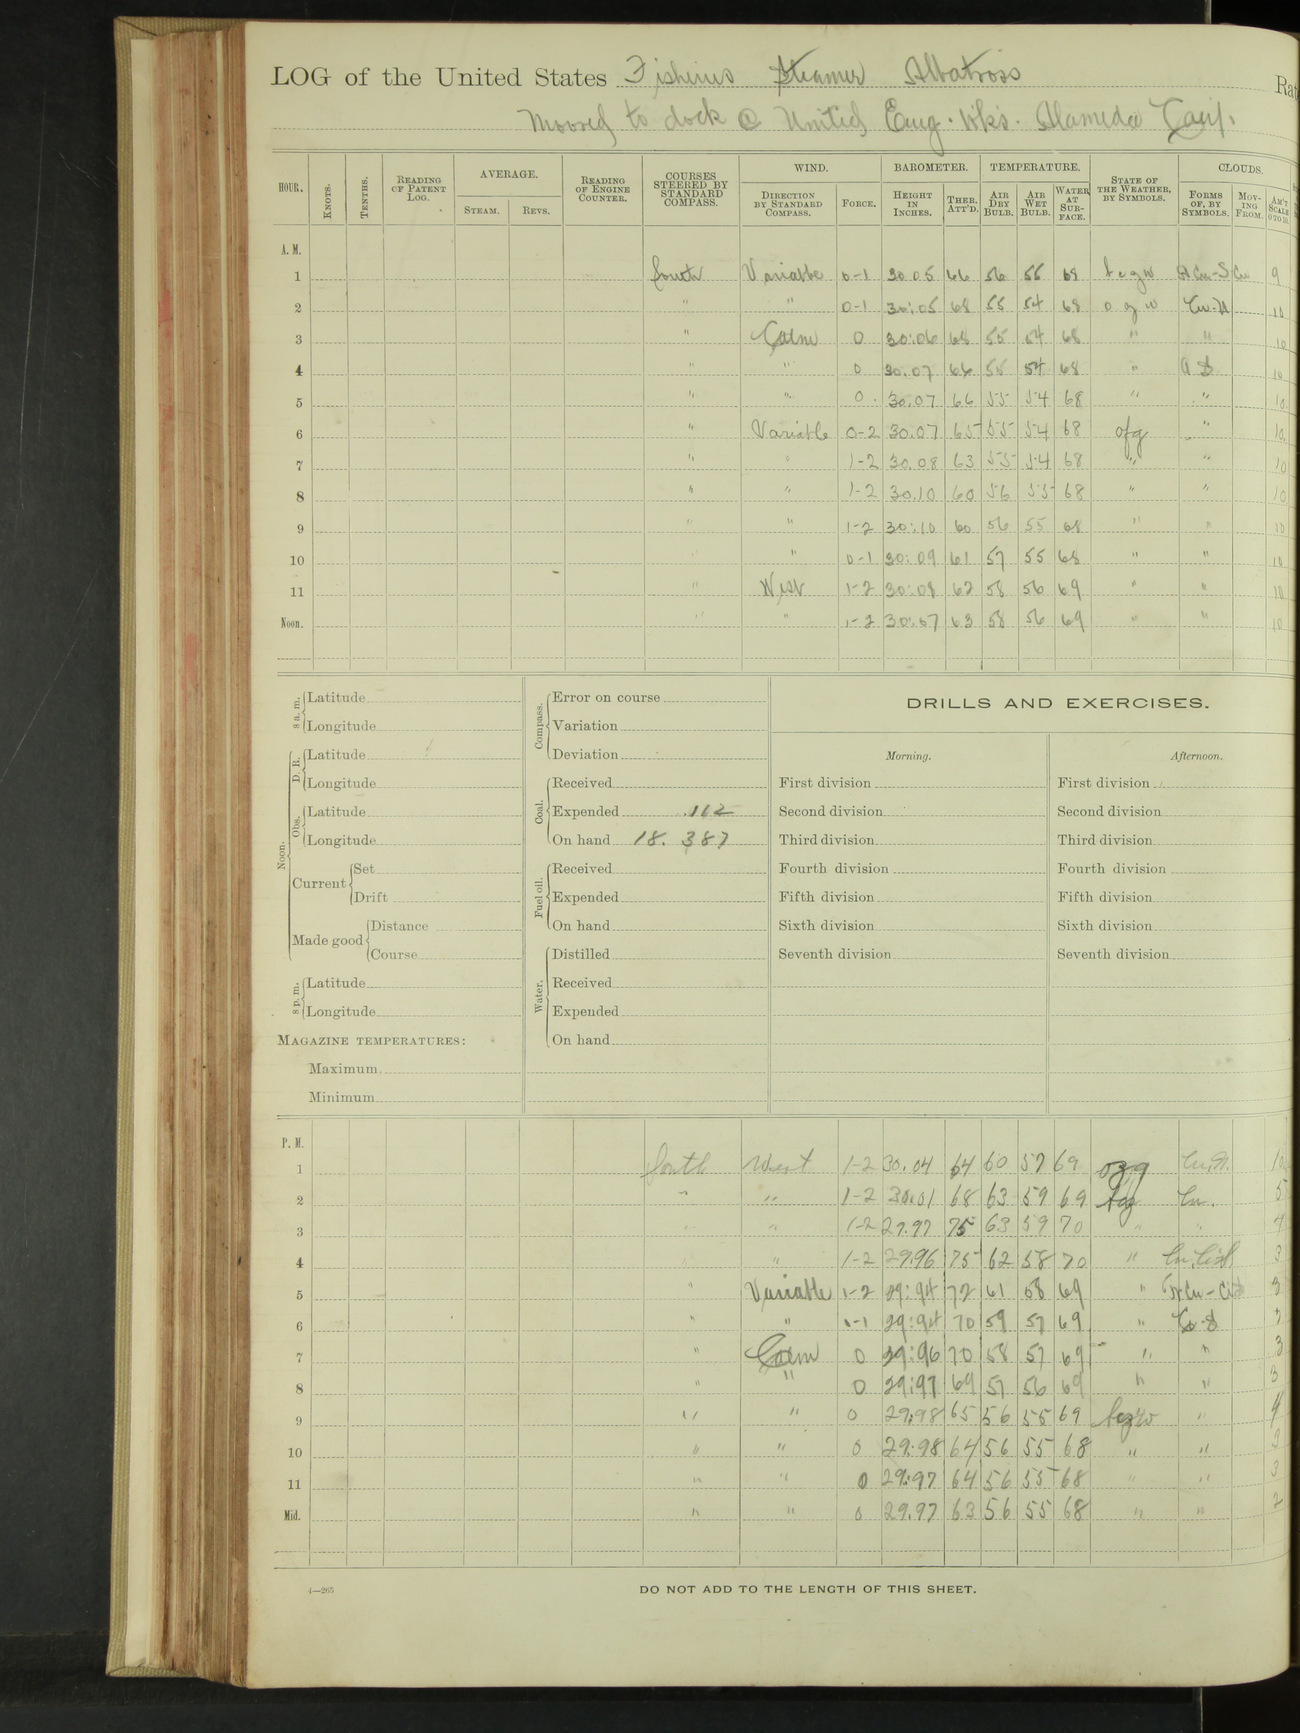 LOG of the United States Fisheries Steamer Albatross
Rat
Moored to dock @ United Eng. Wks. Alameda Calif.
HOUR. KNOTS. TENTHS. READING OF PATENT LOG. AVERAGE. STEAM. REVS. READING OF ENGINE COUNTER. COURSES STEERED BY STANDARD COMPASS. WIND. DIRECTION BY STANDARD COMPASS. FORCE. BAROMETER. HEIGHT IN INCHES. THER. ATT'D. TEMPERATURE. AIR DRY BULB. AIR WET BULB. WATER AT SURFACE. STATE OF THE WEATHER, BY SYMBOLS. CLOUDS. FORMS OF, BY SYMBOLS. MOVING FROM. AM'T SCALE 0 TO 10.
A. M.
1 South Variable 0-1 30.05 66 56 55 69 b c g w A Cu-S Cu 9
2 " " 0-1 30:05 68 55 54 68 o g w Cu-N 10
3 " Calm 0 30:06 68 55 54 68 " " 10
4 " " 0 30.07 66 55 54 68 " A S 10
5 " " 0 30.07 66 55 54 68 " " 10
6 " Variable 0-2 30.07 65 55 54 68 ofg " 10
7 " " 1-2 30.08 63 55 54 68 " " 10
8 " " 1-2 30.10 60 56 55 68 " " 10
9 " " 1-2 30:10 60 56 55 68 " " 10
10 " " 0-1 30:09 61 57 55 68 " " 10
11 " West 1-2 30:08 62 58 56 69 " " 10
Noon. " " 1-2 30:07 63 58 56 69 " " 10
8 a. m. Latitude
Longitude
Noon. D. R. Latitude
Longitude
Obs. Latitude
Longitude
Current Set
Drift
Made good Distance
Course
8 p. m. Latitude
Longitude
MAGAZINE TEMPERATURES:
Maximum
Minimum
Compass. Error on course
Variation
Deviation
Coal. Received
Expended .112
On hand 18. 387
Fuel oil. Received
Expended
On hand
Water. Distilled
Received
Expended
On hand
DRILLS AND EXERCISES.
Morning. Afternoon.
First division First division
Second division Second division
Third division Third division
Fourth division Fourth division
Fifth division Fifth division
Sixth division Sixth division
Seventh division Seventh division
P. M.
1 South West 1-2 30.04 64 60 57 69 Cu.N. 10
2 " " 1-2 30.01 68 63 59 69 bcg Cu. 5
3 " " 1-2 29.97 75 63 59 70 " " 4
4 " 1-2 29.96 75 62 58 70 " 3
5 " Variable 1-2 29:94 72 61 58 69 " A Cu-CiS 3
6 " " 29:94 70 59 57 69 "
7 " Calm 0 29:96 70 58 57 69 " " 3
8 " " 0 29:97 69 57 56 69 " " 3
9 " " 0 29.98 65 56 55 69 bcgw " 4
10 " " 0 29.98 64 56 55 68 " " 3
11 " " 0 29:97 64 56 55 68 " " 3
Mid. " " 0 29.97 63 56 55 68 " " 2
4—265
DO NOT ADD TO THE LENGTH OF THIS SHEET.